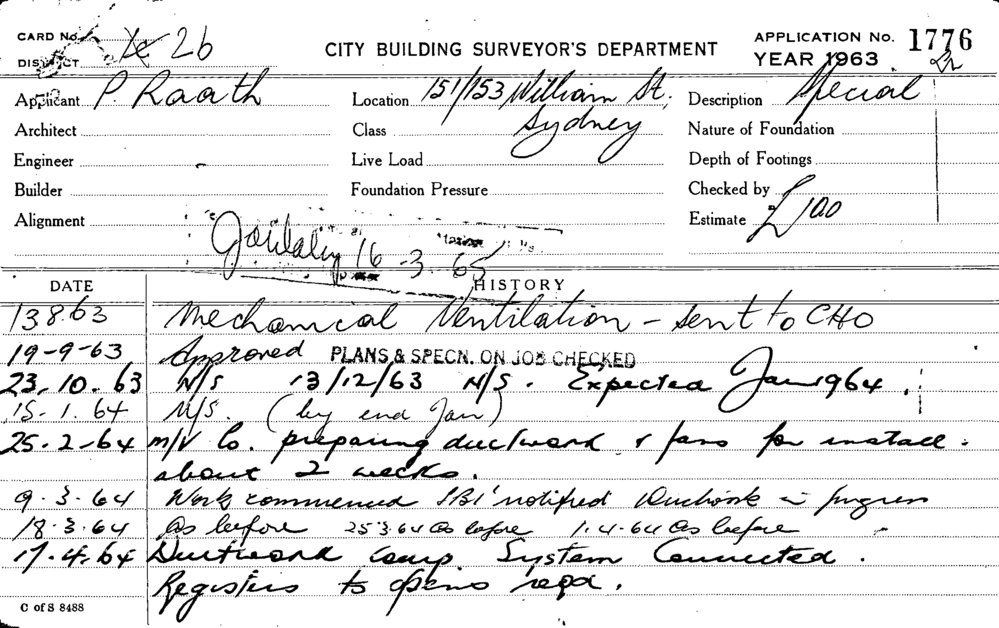 CARD No. 26
DISTRICT
CITY BUILDING SURVEYOR'S DEPARTMENT
APPLICATION No. 1776
YEAR 1963
Applicant P. Raath
Location 151/153 William St,
Sydney
Description Special
Architect
Class
Nature of Foundation
Engineer
Live Load
Depth of Footings
Builder
Foundation Pressure
Checked by
Alignment
Estimate £100
16-3-65
DATE
HISTORY
13 8 63 Mechanical Ventilation - sent to CHO
19-9-63 Approved PLANS & SPECN. ON JOB CHECKED
23.10.63 N/S 13/12/63 N/S. Expected Jan 1964.
15.1.64 N/S. (by end Jan)
25-2-64 M/V Co. preparing ductwork & fans for install.
about 2 weeks.
9.3.64 Work commenced SBI notified Ductwork in progress
18.3.64 As before 25.3.64 As before 1.4.64 As before
17.4.64 Ductwork comp. System Connected.
Registers to opens reqd.
C of S 8488